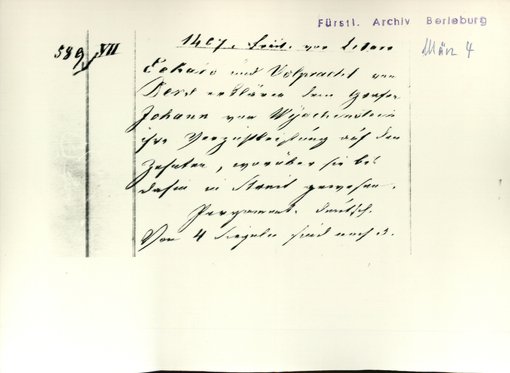 Fürstl. Archiv Berleburg
März 4
589 VII
1467. Freit. vor Letare
Eckard und Volpracht von
Ders erklären dem Grafen
Johann von Wittgenstein
ihre Verzichtleistung auf den
Zehnten, worüber sie bis
dahin in Streit gewesen.
Pergament. deutsch.
Von 4 Siegeln sind noch 3.